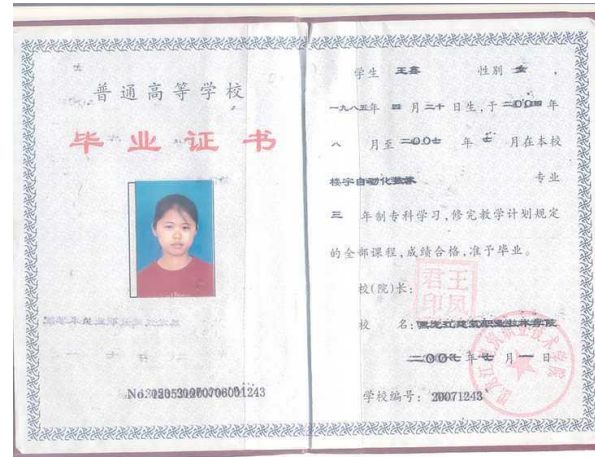 普通高等学校
毕业证书
学生 王鑫 性别 女 ,
一九八五年 四 月二十 日生,于二〇〇四 年
八 月至 二〇〇七 年 七 月在本校
楼宇自动化 专业
三 年制专科学习,修完教学计划规定
的全部课程,成绩合格,准予毕业。
校(院)长:
王凤君印
校 名: 黑龙江建筑职业技术学院
二〇〇七 年 七 月 一 日
学校编号: 20071243